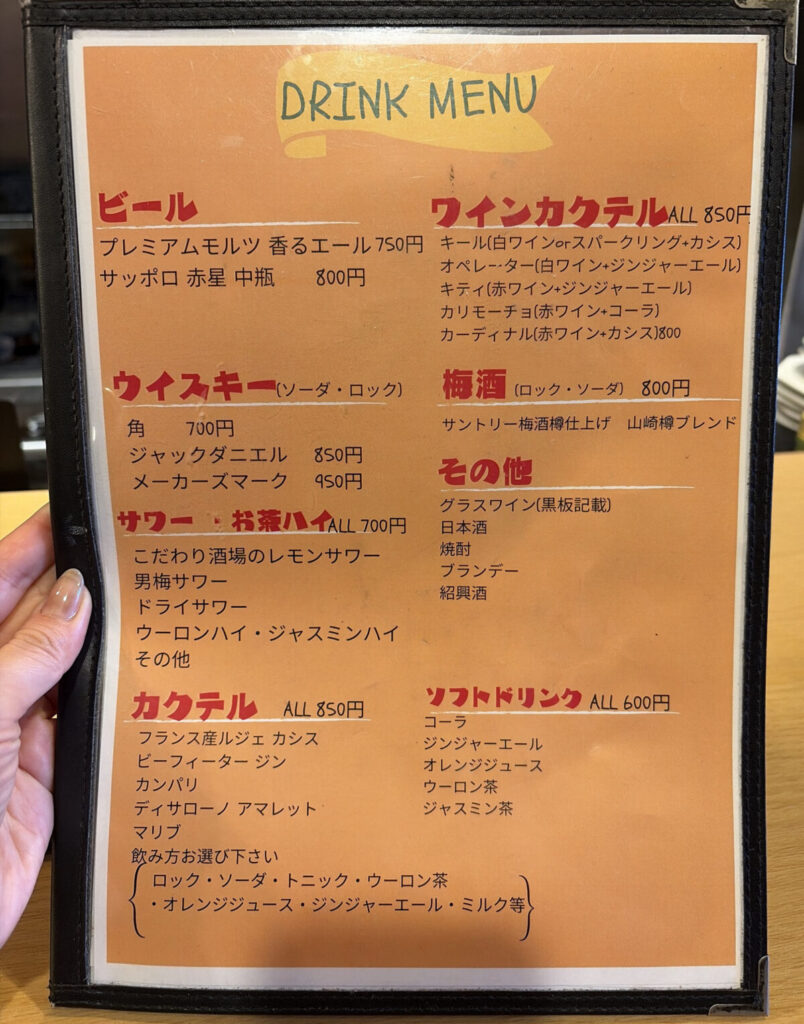 DRINK MENU
ビール
プレミアムモルツ 香るエール 750円
サッポロ 赤星 中瓶 800円
ウイスキー(ソーダ・ロック)
角 700円
ジャックダニエル 850円
メーカーズマーク 950円
サワー・お茶ハイ ALL 700円
こだわり酒場のレモンサワー
男梅サワー
ドライサワー
ウーロンハイ・ジャスミンハイ
その他
カクテル ALL 850円
フランス産ルジェ カシス
ビーフィーター ジン
カンパリ
ディサローノ アマレット
マリブ
飲み方お選び下さい
ロック・ソーダ・トニック・ウーロン茶
・オレンジジュース・ジンジャーエール・ミルク等
ワインカクテル ALL 850円
キール(白ワインorスパークリング+カシス)
オペレーター(白ワイン+ジンジャーエール)
キティ(赤ワイン+ジンジャーエール)
カリモーチョ(赤ワイン+コーラ)
カーディナル(赤ワイン+カシス)800
梅酒 (ロック・ソーダ) 800円
サントリー梅酒樽仕上げ 山崎樽ブレンド
その他
グラスワイン(黒板記載)
日本酒
焼酎
ブランデー
紹興酒
ソフトドリンク ALL 600円
コーラ
ジンジャーエール
オレンジジュース
ウーロン茶
ジャスミン茶